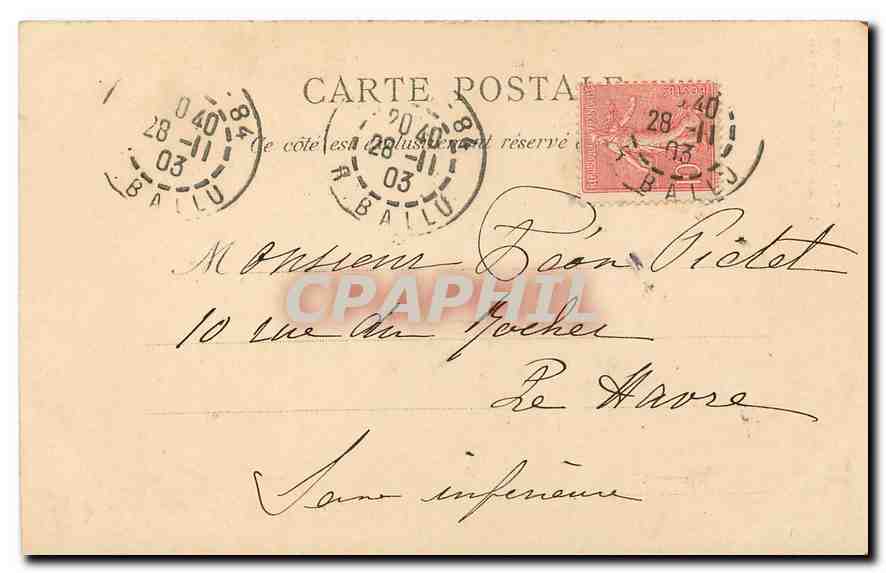 CARTE POSTALE
Ce côté est exclusivement réservé
20 40
28 -11
03
84
R. BALLU
20 40
28 -11
03
84
R. BALLU
40
28 -11
03
BALLU
Monsieur Léon Pictet
CPAPHIL
10 rue du Rocher
Le Havre
Seine inférieure